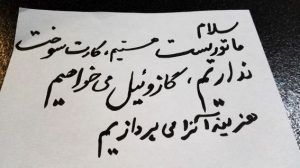 سلام
ما توریست هستیم، کارت سوخت
نداریم، گازوئیل می خواهیم
هزینه آنرا می پردازیم